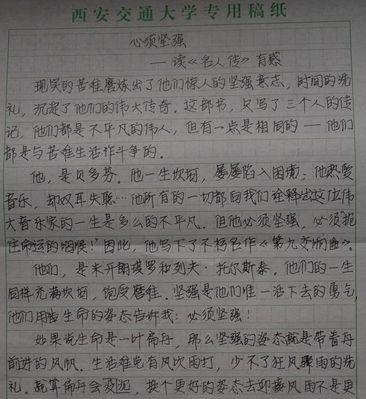 西安交通大学专用稿纸
必须坚强
——读《名人传》有感
现实的苦难磨炼出了他们惊人的坚强意志,时间的洗
礼,沉淀了他们的伟大传奇。这部书,只写了三个人的传
记,他们都是不平凡的伟人,但有一点是相同的——他们
都是与苦难生活作斗争的。
他,是贝多芬。他一生坎坷,屡屡陷入困境;他热爱
音乐,却双耳失聪…他所有的一切都向我们诠释出这位伟
大音乐家的一生是多么的不平凡。但他必须坚强,必须“扼
住命运的咽喉!”因此,他写下了不朽名作《第九交响曲》。
他们,是米开朗琪罗和列夫·托尔斯泰。他们的一生
同样充满坎坷,饱受磨难。坚强是他们唯一活下去的勇气,
他们用生命的姿态告诉我:必须坚强!
如果说生命是一叶扁舟,那么坚强的姿态就是带着舟
前进的风帆。生活难免有风吹雨打,少不了狂风暴雨的洗
礼。就算扁舟会,换个更好的姿态去迎接风雨不是更